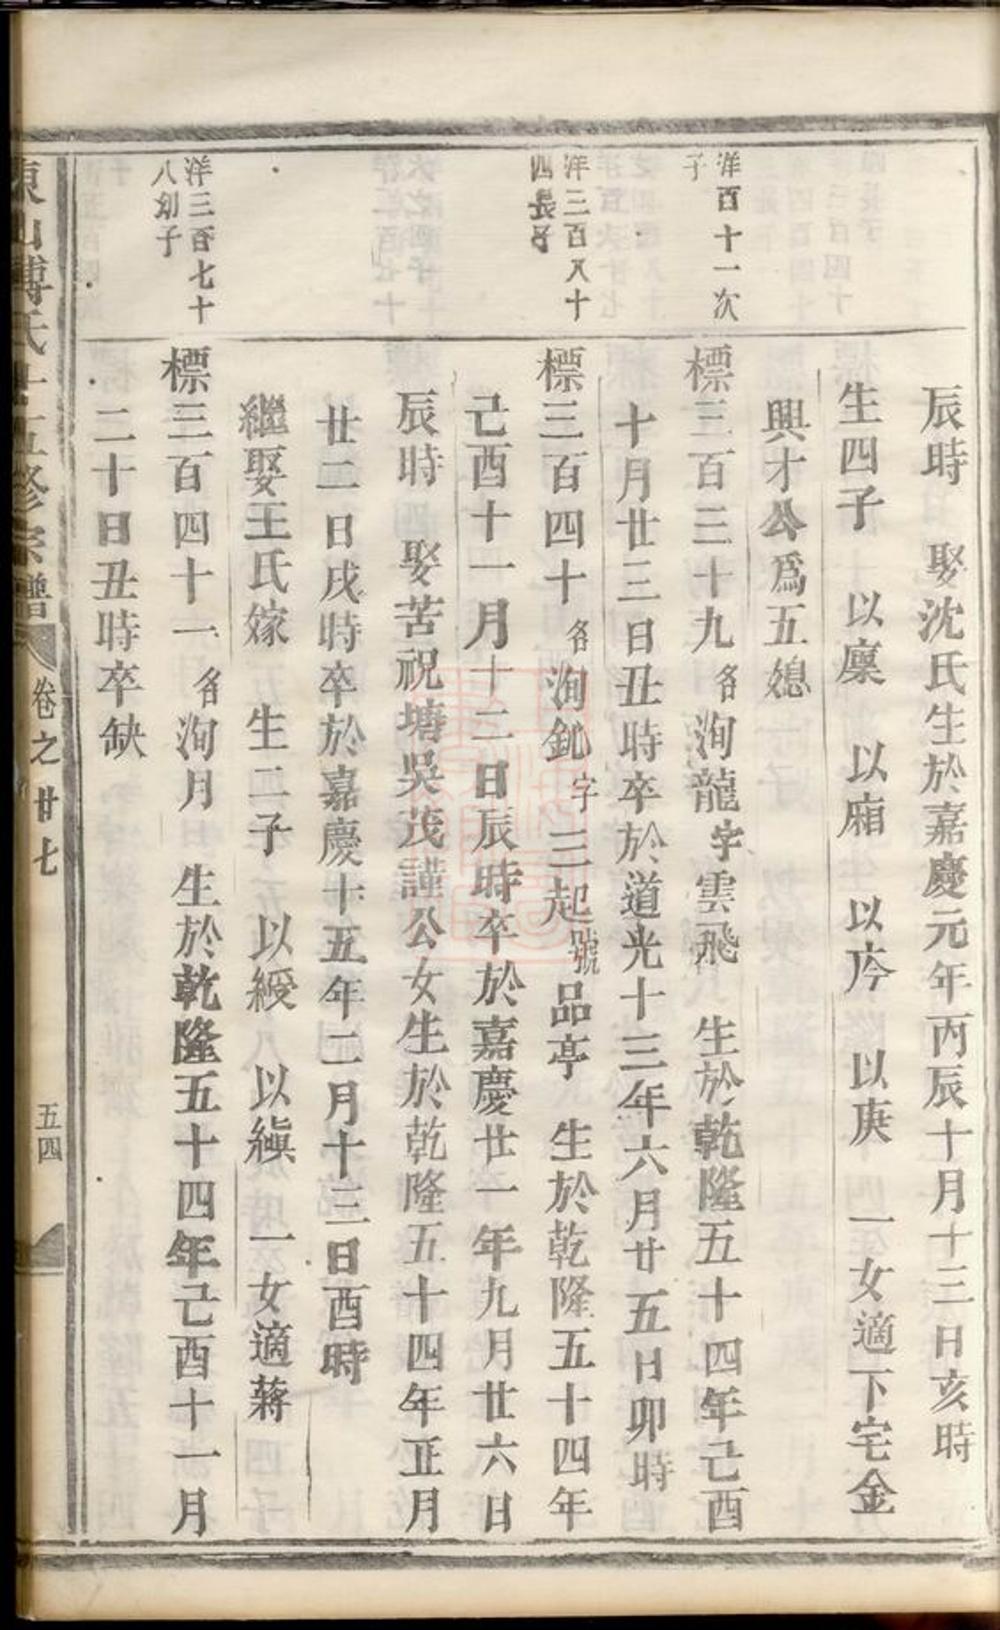 辰時　娶沈氏生於嘉慶元年丙辰十月十三日亥時
生四子　以廩　以廂　以庎　以庚　一女適下宅金
興才公爲五媳
洋百十一次
子
標三百三十九名洵龍字雲飛　生於乾隆五十四年己酉
十月廿三日丑時卒於道光十三年六月廿五日卯時
洋三百八十
四長子
標三百四十名洵釚字三起號品亭　生於乾隆五十四年
己酉十一月十二日辰時卒於嘉慶廿一年九月廿六日
辰時　娶苦祝塘吳茂謹公女生於乾隆五十四年正月
廿二日戌時卒於嘉慶十五年二月十三日酉時
繼娶王氏嫁　生二子　以綬　以縝　一女適蔣
洋三百七十
八幼子
標三百四十一名洵月　生於乾隆五十四年己酉十一月
二十日丑時卒缺
東山傅氏十五修宗譜
卷之廿七
五四